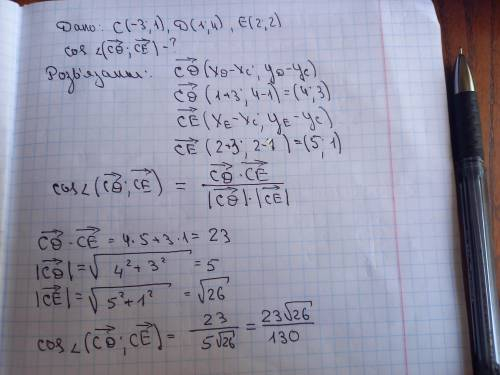 Дано: C(-3; 1), D(1; 4), E(2; 2)
cos∠(CD→; CE→) - ?
Розв'язання:
CD→ (x_D - x_C; y_D - y_C)
CD→ (1+3; 4-1) = (4; 3)
CE→ (x_E - x_C; y_E - y_C)
CE→ (2+3; 2-1) = (5; 1)
cos∠(CD→; CE→) = (CD→ · CE→) / (|CD→| · |CE→|)
CD→ · CE→ = 4·5 + 3·1 = 23
|CD→| = √(4² + 3²) = 5
|CE→| = √(5² + 1²) = √26
cos∠(CD→; CE→) = 23 / (5√26) = 23√26 / 130